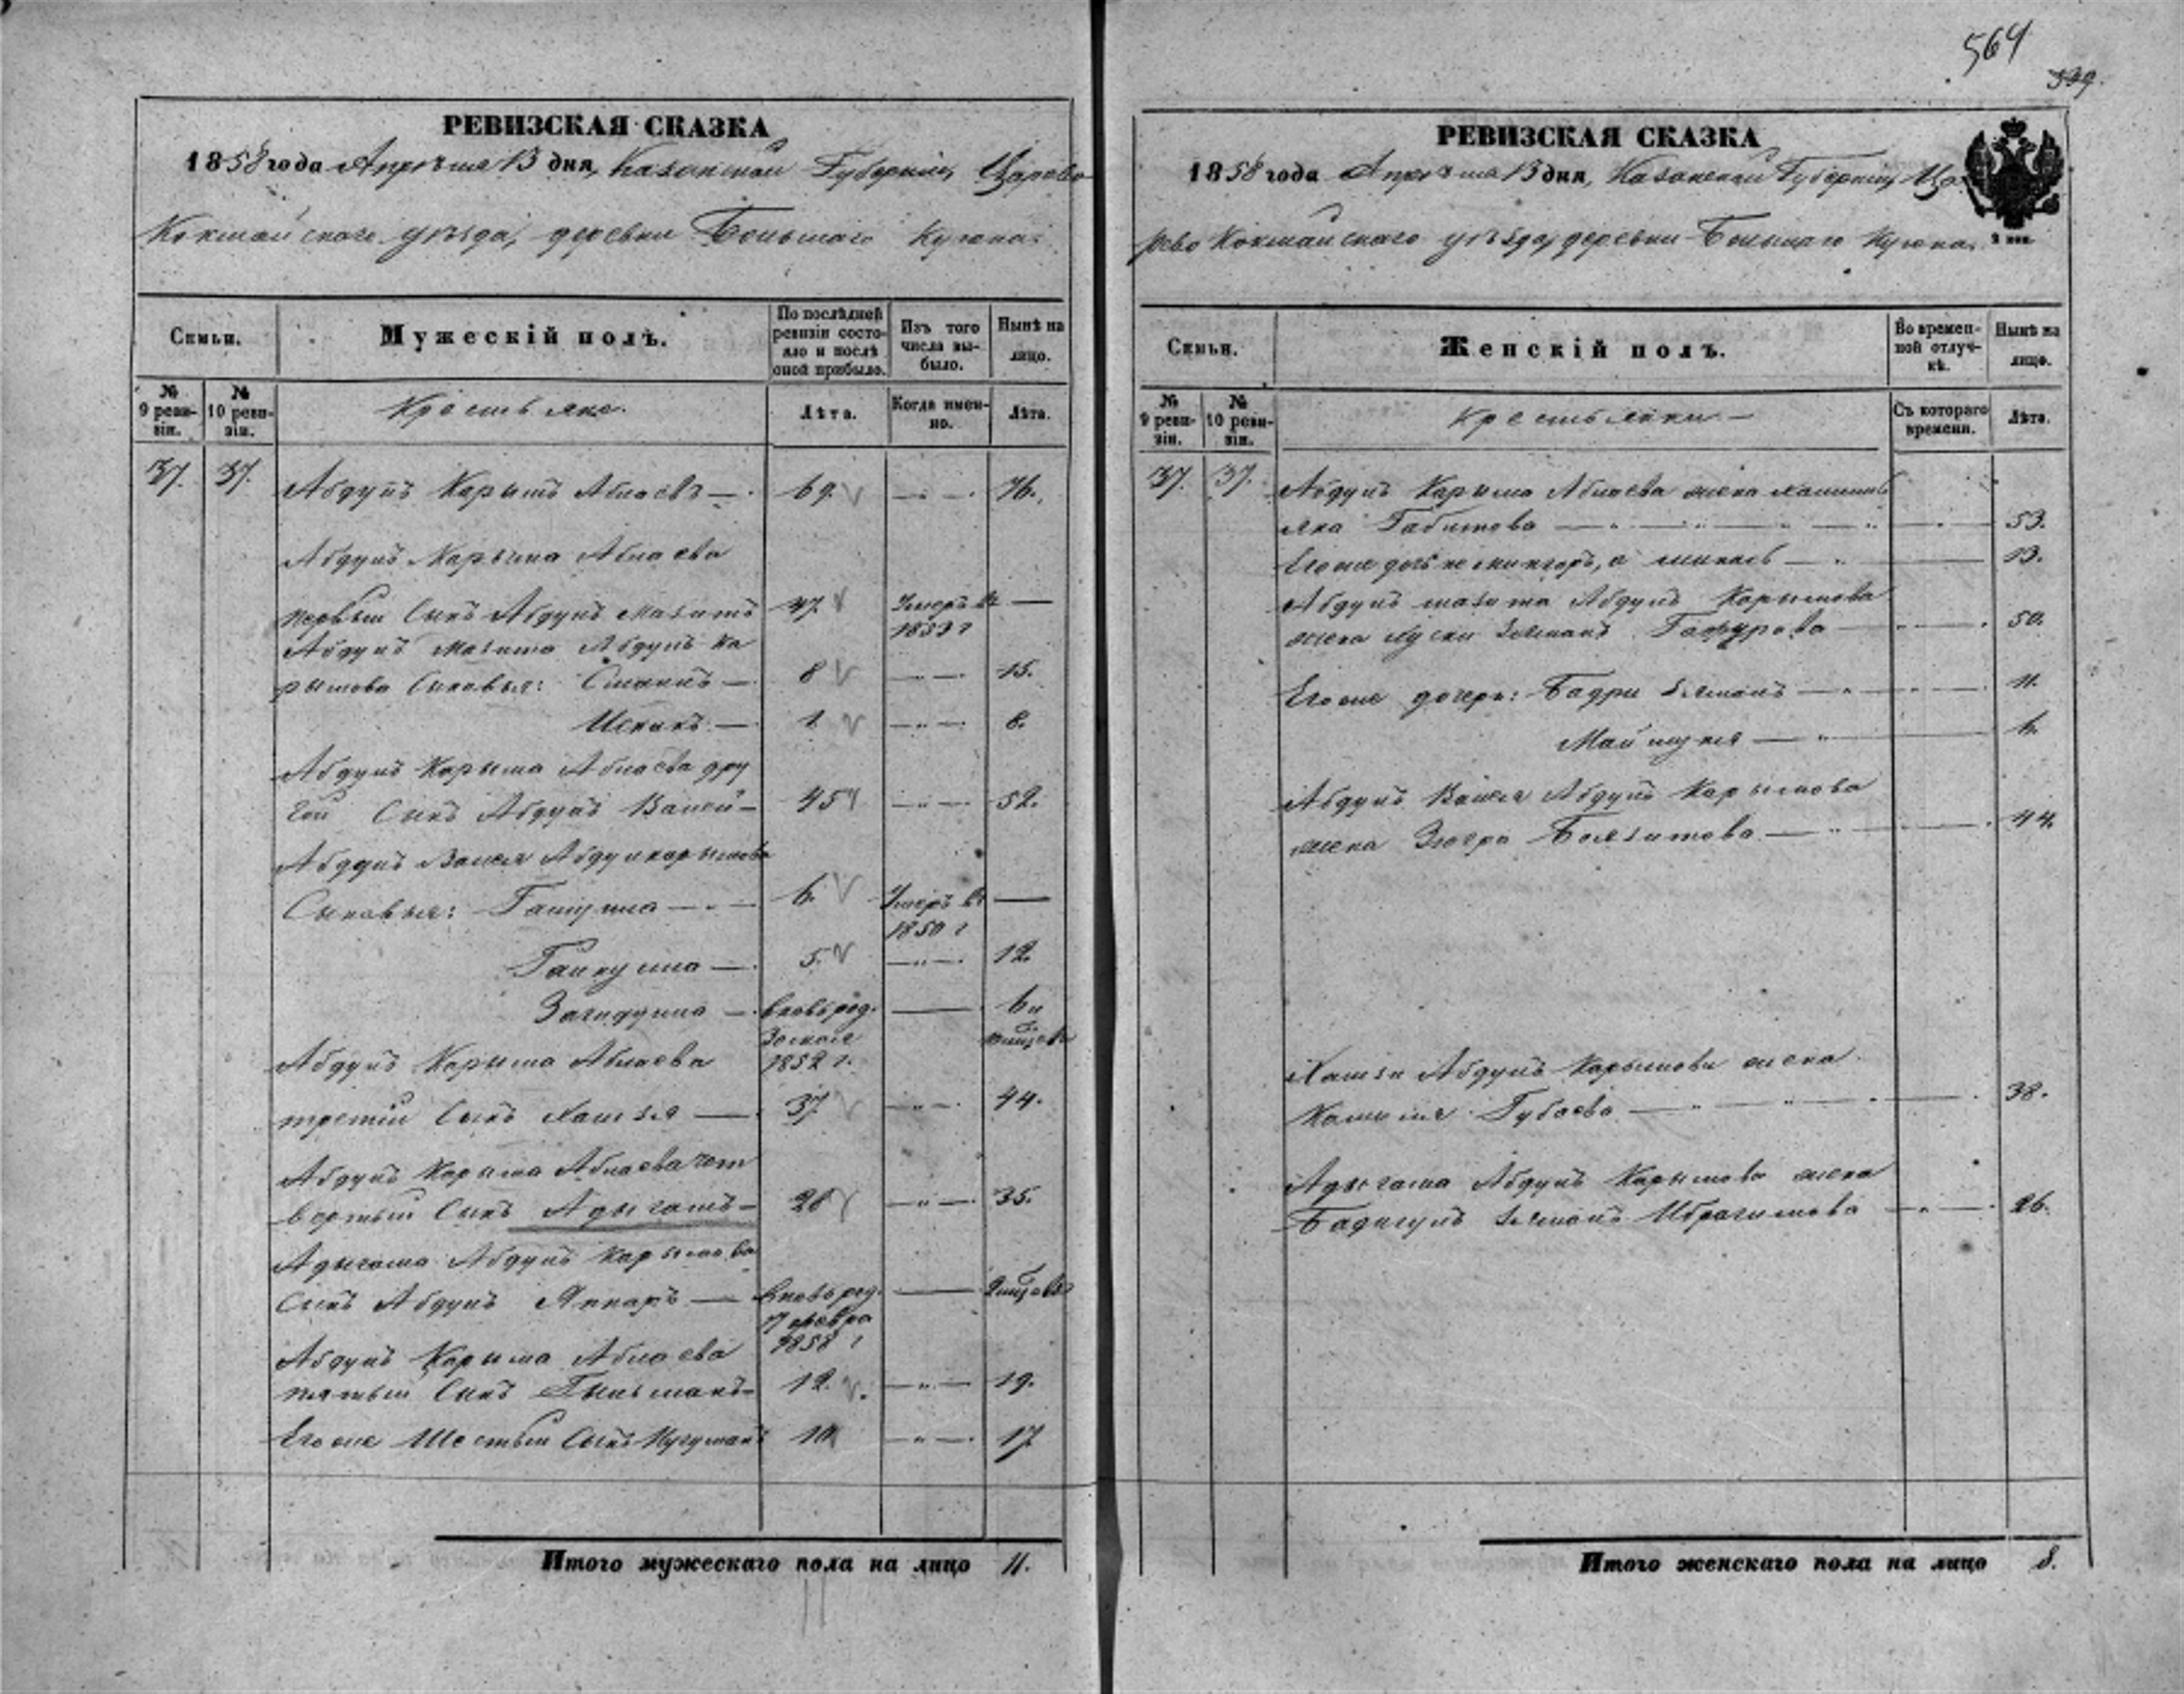 564
399.
РЕВИЗСКАЯ СКАЗКА
1858 года Апрѣля 13 дня, Казанской Губерніи, Царево
Кокшайскаго уѣзда, деревни Большаго Куюка.
Семьи.
Мужескій полъ.
По послѣдней ревизіи состояло и послѣ оной прибыло.
Изъ того числа выбыло.
Нынѣ на лицо.
№ 9 ревизіи.
№ 10 ревизіи.
Крестьяне.
Лѣта.
Когда именно.
Лѣта.
37. 37. Абдулъ Карымъ Аблаевъ — 69. — 76.
Абдулъ Карыма Аблаева
первый Сынъ Абдулъ Мазитъ 47 Умеръ въ 1853 г —
Абдулъ Мазита Абдулъ Ка
рымова Сыновья: — 8 — 15.
Исхакъ — 1 — 8.
Абдулъ Карыма Аблаева дру
гой Сынъ Абдулъ Валей — 45 — 52.
Абдулъ Валея Абдулкарымова
Сыновья: — 6. Умеръ въ 1850 г —
— 5. — 12.
— вновь род. 1852 г. — 6 и
Абдулъ Карыма Аблаева
третій Сынъ Хамзя — 37 — 44.
Абдулъ Карыма Аблаева чет
вертый Сынъ Адыгамъ — 28 — 35.
Адыгама Абдулъ Карымова
Сынъ Абдулъ — вновь род. 7 февра 1858 г —
Абдулъ Карыма Аблаева
пятый Сынъ — 12. — 19.
Его же Шестый Сынъ Нугуманъ 10 — 17
Итого мужескаго пола на лицо 11.
РЕВИЗСКАЯ СКАЗКА
1858 года Апрѣля 13 дня, Казанской Губерніи, Ца
2 коп.
рево Кокшайскаго уѣзда, деревни Большаго Куюка.
Семьи.
Женскій полъ.
Во временной отлучкѣ.
Нынѣ на лицо.
№ 9 ревизіи.
№ 10 ревизіи.
Крестьянки —
Съ котораго времени.
Лѣта.
37. 37. Абдулъ Карыма Аблаева жена
Габитова — 53.
Его же дочь — 13.
Абдулъ Мазита Абдулъ Карымова
жена Гафурова — 50.
Его же дочери: Бадри — 11.
— 6.
Абдулъ Валея Абдулъ Карымова
жена Зюгра — 44.
Хамзи Абдулъ Карымова жена
Губаева — 38.
Адыгама Абдулъ Карымова жена
Ибрагимова — 26.
Итого женскаго пола на лицо 8.